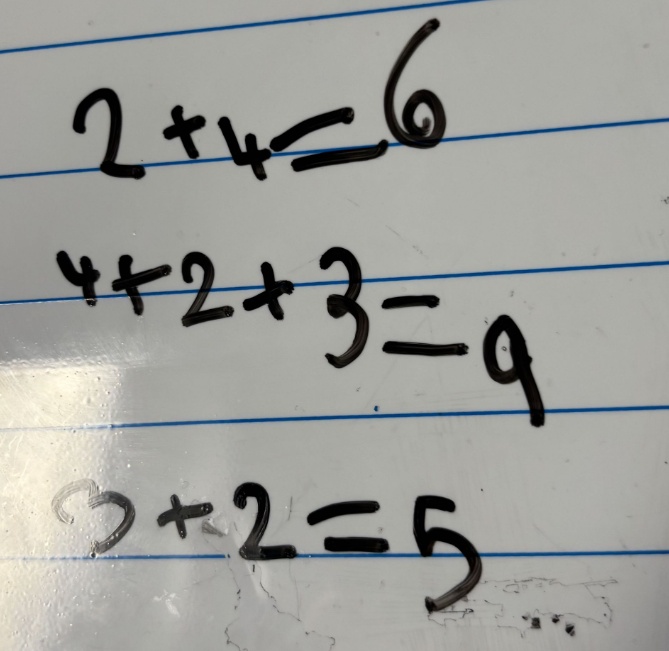 2 + 4 = 6
4 + 2 + 3 = 9
3 + 2 = 5